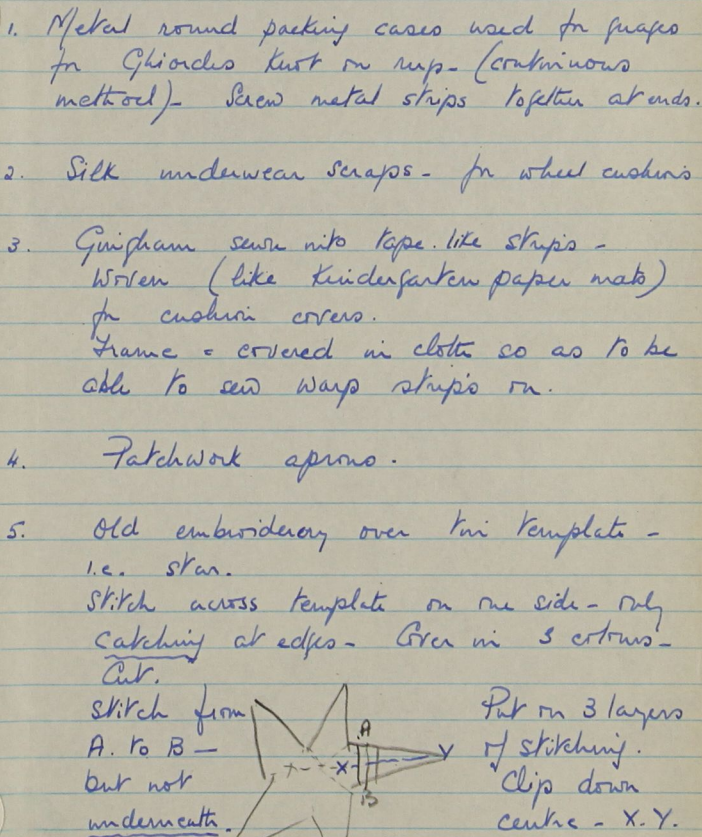 1. Metal round packing cases used for guages
for Ghiordes Knot on rug - (continuous
method) - Screw metal strips together at ends.
2. Silk underwear scraps - for wheel cushions
3. Gingham sewn into tape. like strips -
Woven (like Kindergarten paper mats)
for cushion covers.
Frame = covered in cloth so as to be
able to sew warp strips on.
4. Patchwork aprons.
5. Old embroidery over tin template -
i.e. star.
Stitch across template on one side - only
catching at edges - Cover in 3 colours -
Cut.
Stitch from
A. to B —
but not
underneath.
A
X X Y
B
Put on 3 layers
of stitching.
Clip down
centre - X.Y.